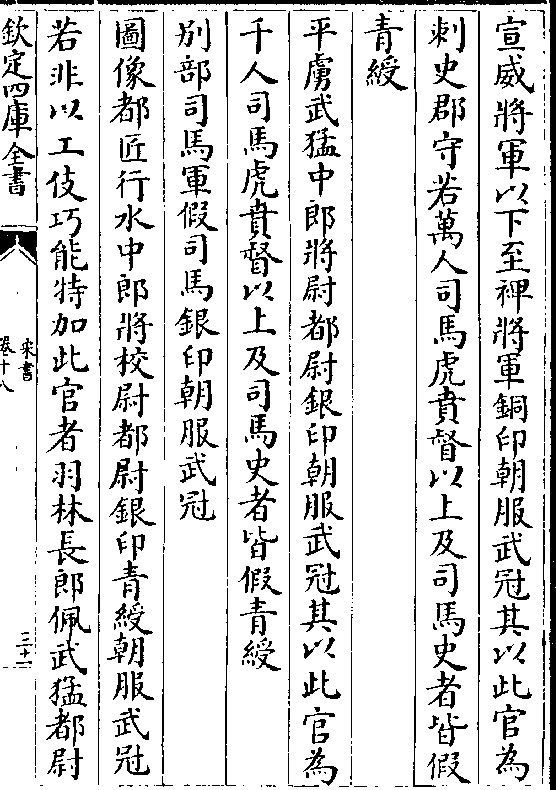 宣威將軍以下至裨將軍銅印朝服武冠其以此官為
刺史郡守若萬人司馬虎賁督以上及司馬史者皆假
青綬
平虜武猛中郎將尉都尉銀印朝服武冠其以此官為
千人司馬虎賁督以上及司馬史者皆假青綬
別部司馬軍假司馬銀印朝服武冠
圖像都匠行水中郎將校尉都尉銀印青綬朝服武冠
若非以工伎巧能特加此官者羽林長郎佩武猛都尉
欽定四庫全書
宋書
卷十八
三十一